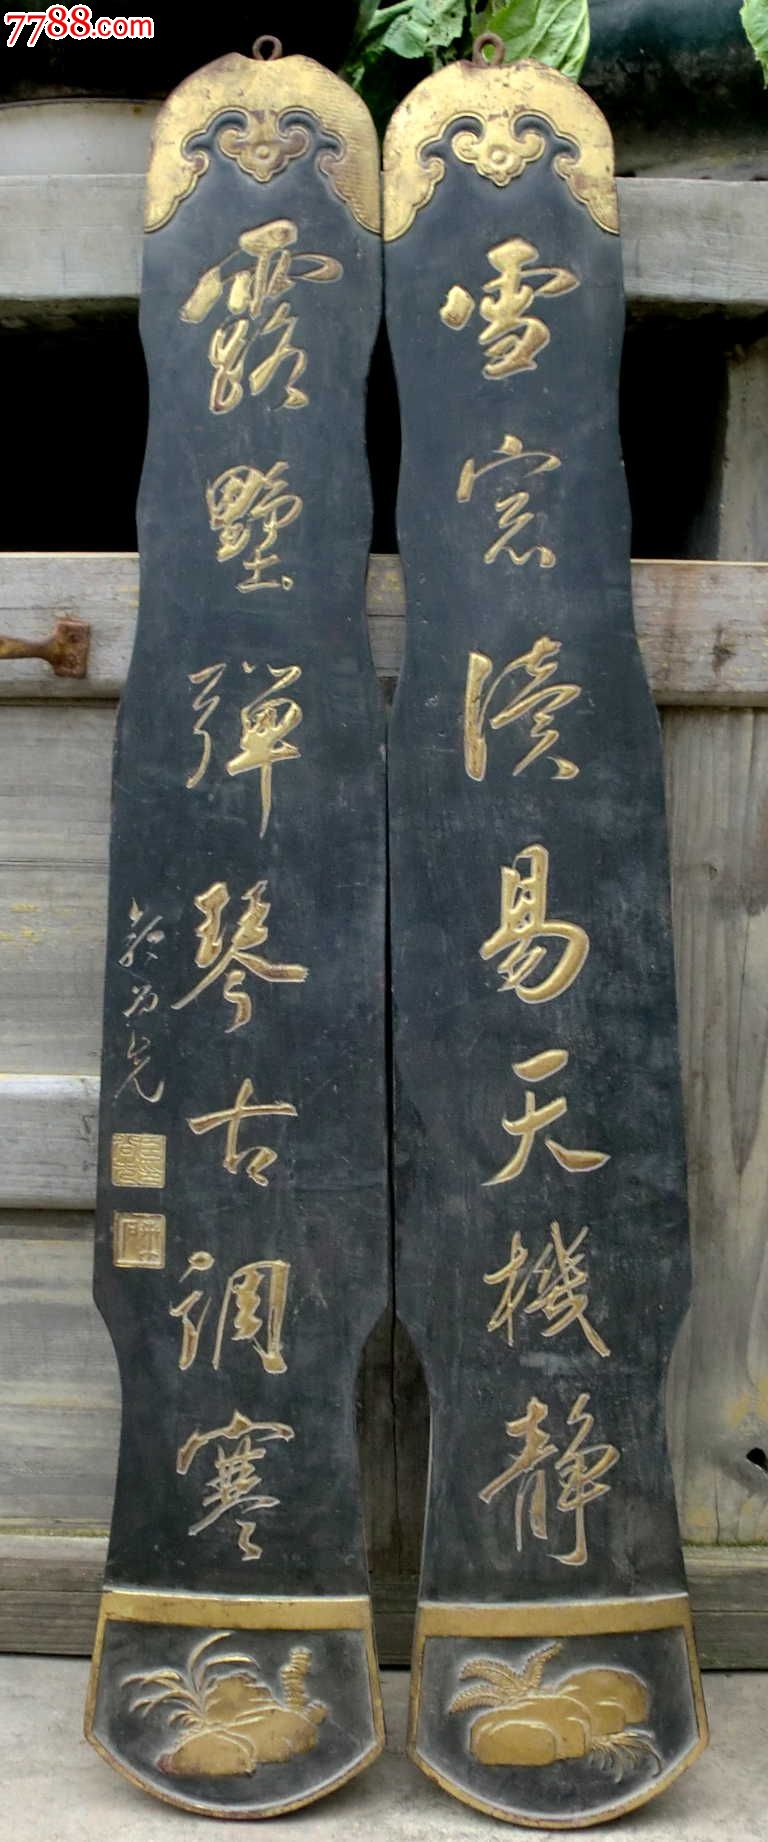 7788.com
雪窓读易天機静
露墅彈琴古調寒